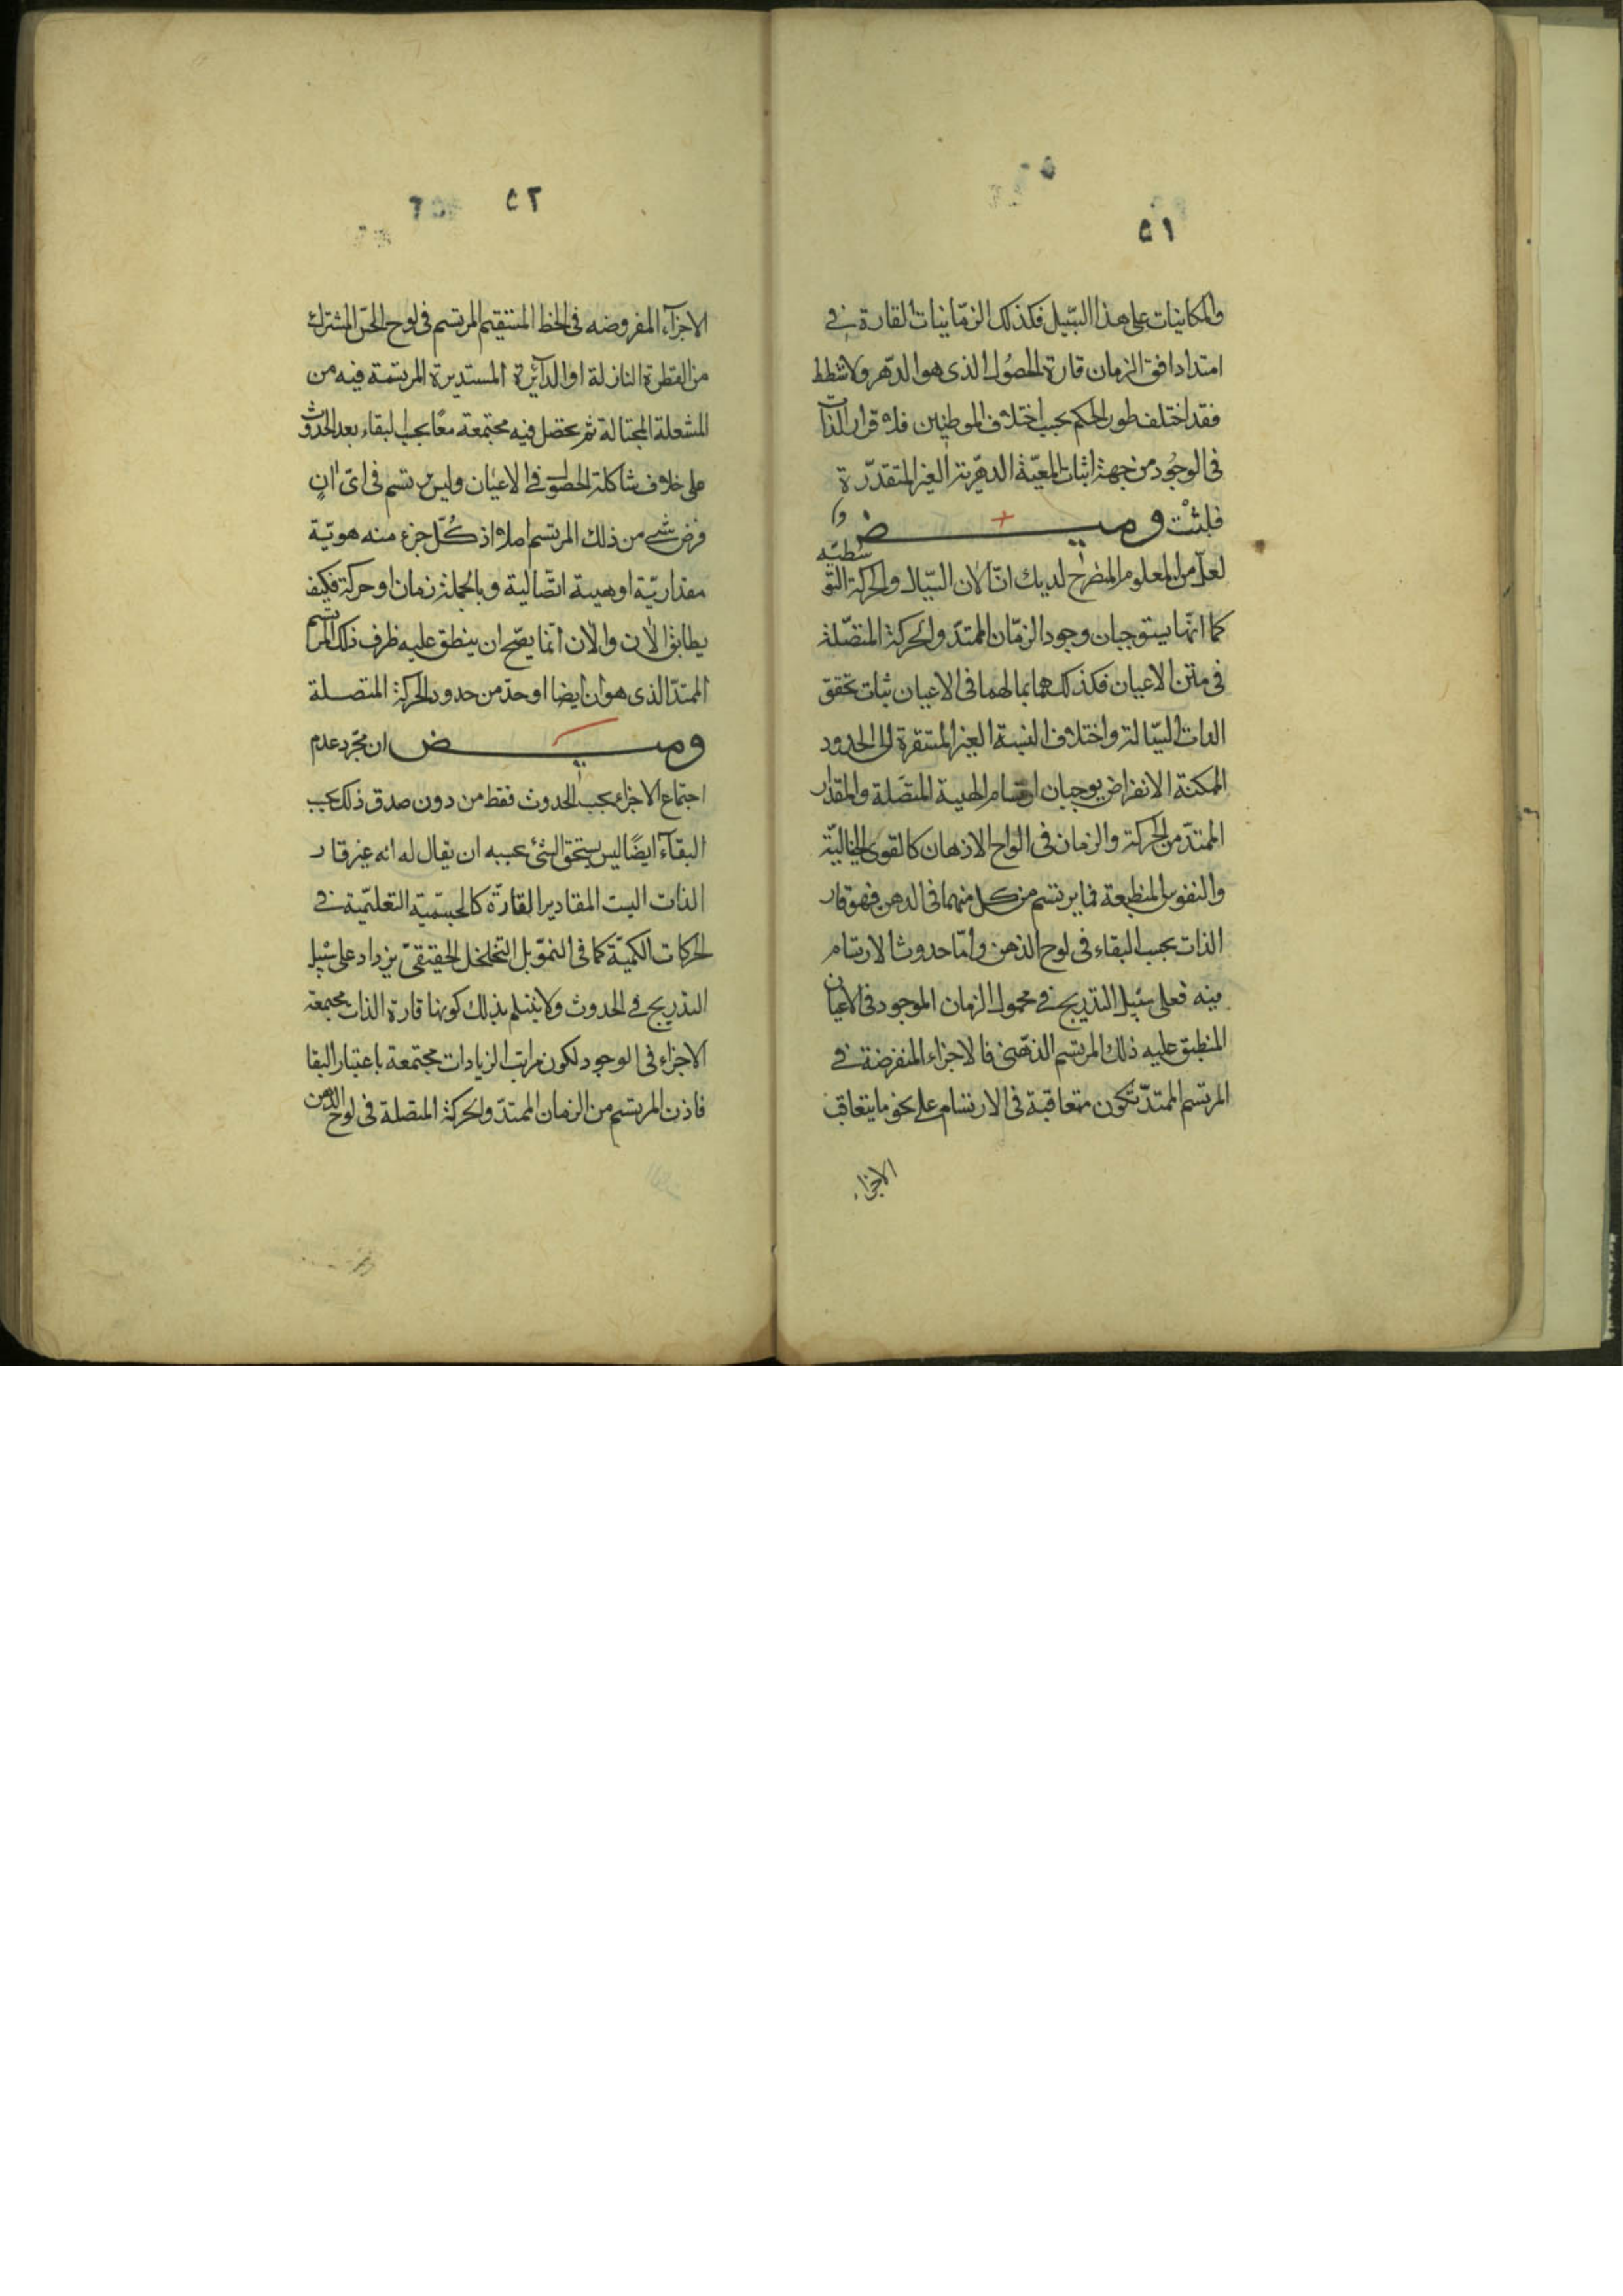 ٥١
والمكانيات على هذا السّبيل فكذلك الزمّانيات القارة في
امتداد افق الزمان قارة الحصُول الذى هو الدّهر ولا شطط
فقد اختلف طور الحكم بحسب اختلاف الموطنين فلا قرار الذات
فى الوجُود من جهة اثبات المعيّة الدهريّة الغير المتقدّرة
فلبثت وميض و
لعلّ من المعلوم المنصرح لديك انّ الان السّيال والحركة التو
سّطيّه
كما انّهما يستوجبان وجود الزمّان الممتدّ والحركة المتصّلة
فى متن الاعيان فكذلك هما بمالهما فى الاعيان ثبات تحقق
الذات السّيالة واختلاف النسبة الغير المستقرة الى الحدود
الممكنة الانفراض يوجبان ارتسام الهيئة المتصّلة والمقدار
الممتدّ من الحركة والزمان فى الواح الاذهان كالقوى الخياليّة
والنفوس المنطبعة فما يرتسم من كل منهما فى الذهن فهو قار
الذات بحسب البقاء فى لوح الذهن وامّا حدوث الارتسام
فيه فعلى سبيل التدريج في محمول الزمان الموجود فى الاعيان
المنطبق عليه ذلك المرتسم الذهّنى فالاجزاء المنفرضة في
المرتسم الممتدّ تكون متعاقبة فى الارتسام على نحو ما يتعاقب
الاجزاء
٥٢
الاجزآء المفروضه فى الخط المستقيم المرتسم فى لوح الحسّ المشترك
من القطرة النازلة او الدآئرة المستديرة المرتسمة فيه من
المشعلة الجتالة ثم يحصل فيه مجتمعة معًا بحسب البقاء بعد الحدوث
على خلاف شاكلة الحصول في الاعيان وليس يرتسم فى اىّ انٍ
فرض شي من ذلك المرتسم اصلا اذ كُلّ جزء منه هويّة
مقداريّة او هيئة اتّصالية وبالجملة زمان او حركة فكيف
يطابق الان والان انما يصّح ان ينطبق عليه ظرف ذلك المرتسم
الممتدّ الذى هو ان ايضا او حدّ من حدود الحركة المتصلة
وميض ان مجّرد عدم
اجتماع الاجزاء بحسب الحدوث فقط من دون صدق ذلك بحسب
البقآء ايضًا ليس يستحق الشئ بحسبه ان يقال له انه غير قار
الذات اليست المقادير القارّة كالجسميّة التعليّمية في
الحركات الكميّة كما فى النموّ بل التخلخل الحقيقىّ يزداد على سبيل
التدريج في الحدوث ولا ينثلم بذلك كونها قارة الذات مجتمعة
الاجزاء فى الوجود لكون مراتب الزيادات مجتمعة باعتبار البقا
فاذن المرتسم من الزمان الممتدّ والحركة المتصلة فى لوح الذهن